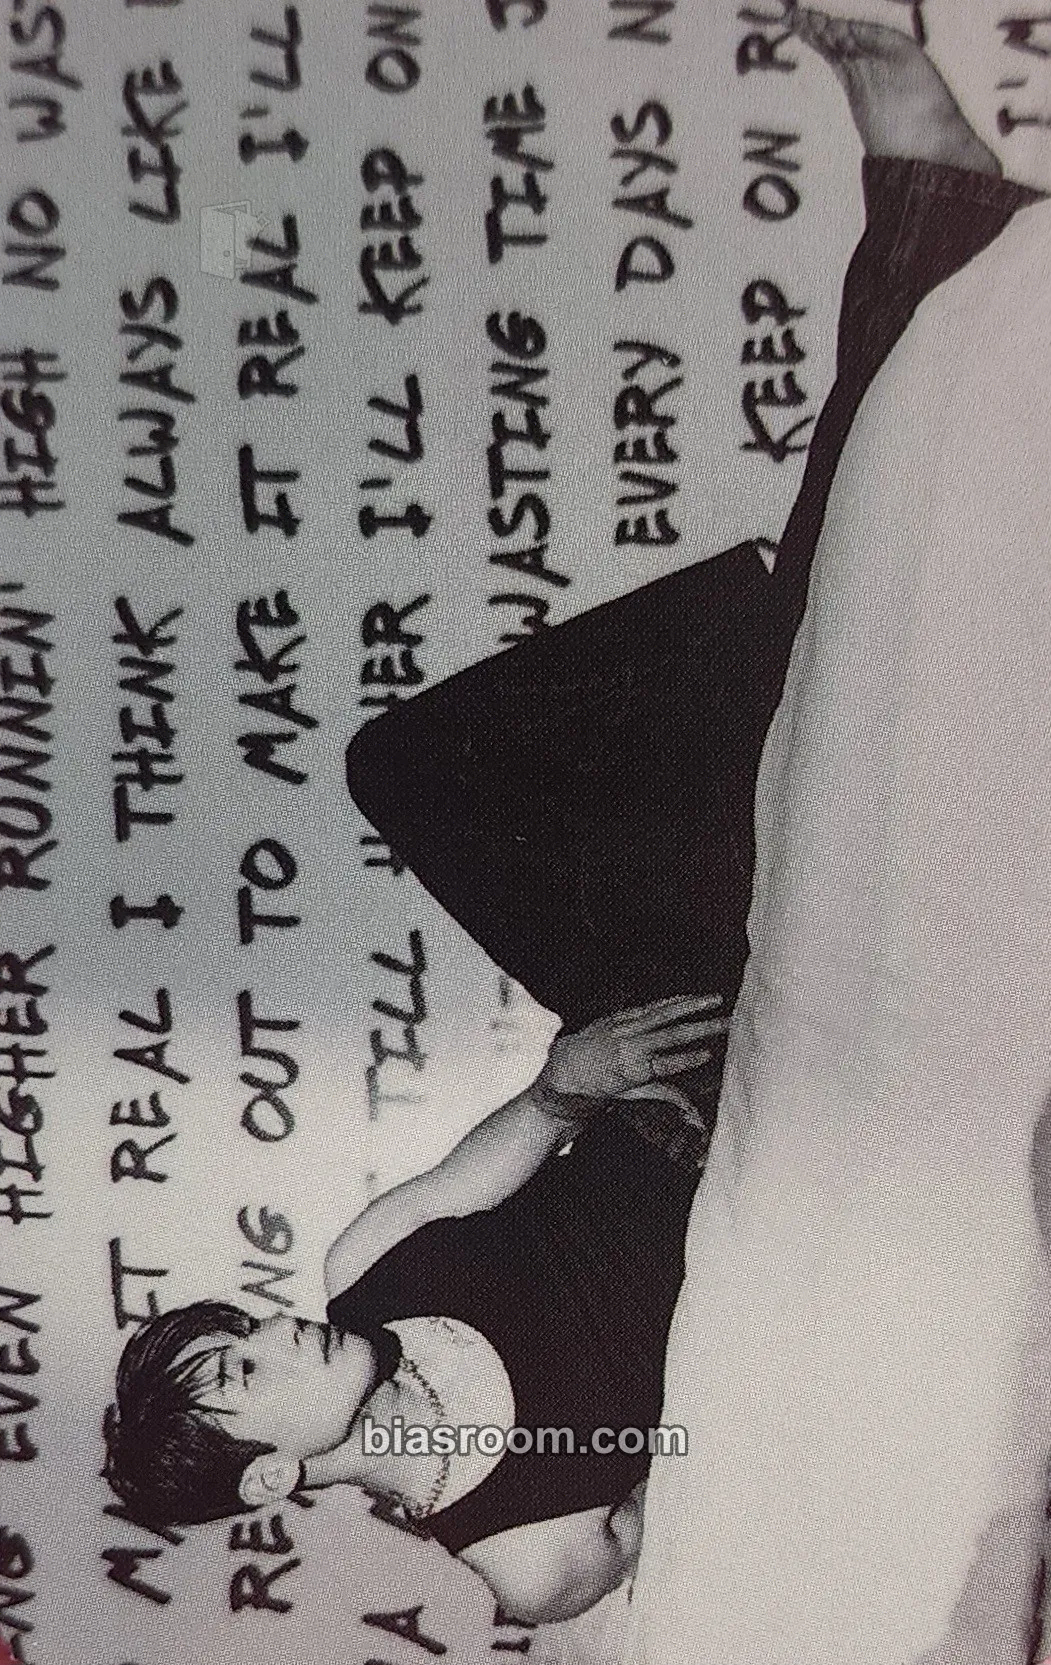 NG EVEN HIGHER RUNNIN' HIGH NO WAS
MA IT REAL I THINK ALWAYS LIKE
RE NG OUT TO MAKE IT REAL I'LL
A TILL H HER I'LL KEEP ON
WASTING TIME J
EVERY DAYS N
KEEP ON RU
I'M
biasroom.com